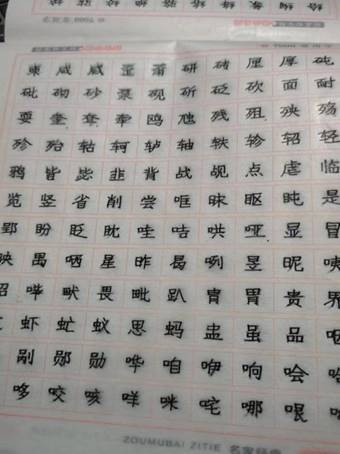 柬 咸 威 歪 甭 研 砖 厘 厚 砘
砒 砌 砂 泵 砚 斫 砭 砍 面 耐
耍 奎 耷 牵 鸥 虺 残 殂 殃 殇
殄 殆 轱 轲 轳 轴 轶 轸 轺 轻
鸦 皆 毖 韭 背 战 觇 点 虐 临
览 竖 省 削 尝 哐 昧 眍 盹 是
郢 盼 眨 眈 哇 咭 哄 哑 显 冒
映 禺 哂 星 昨 曷 咧 昱 昵 咦
昭 哔 畎 畏 毗 趴 胄 胃 贵 界
虾 虻 蚁 思 蚂 盅 虽 品
剐 郧 勋 哗 咱 咿 响 哙
哆 咬 咳 咩 咪 咤 哪 哏
ZOUMUBAI ZITIE 名家经典